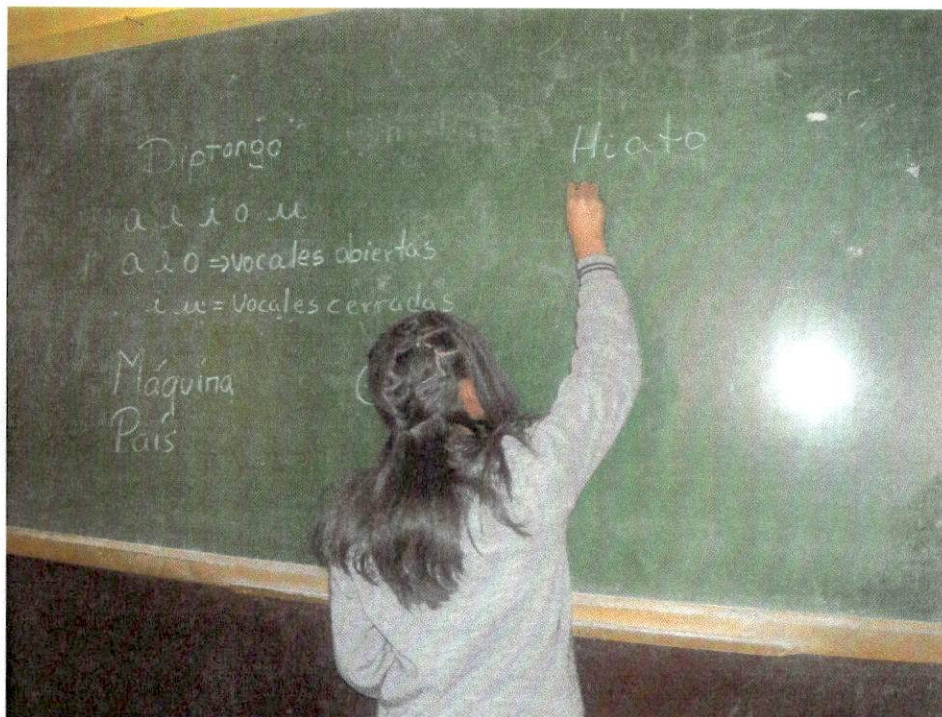 Diptongo
Hiato
a e i o u
a e o => vocales abiertas
i u = Vocales cerradas
Máquina
País